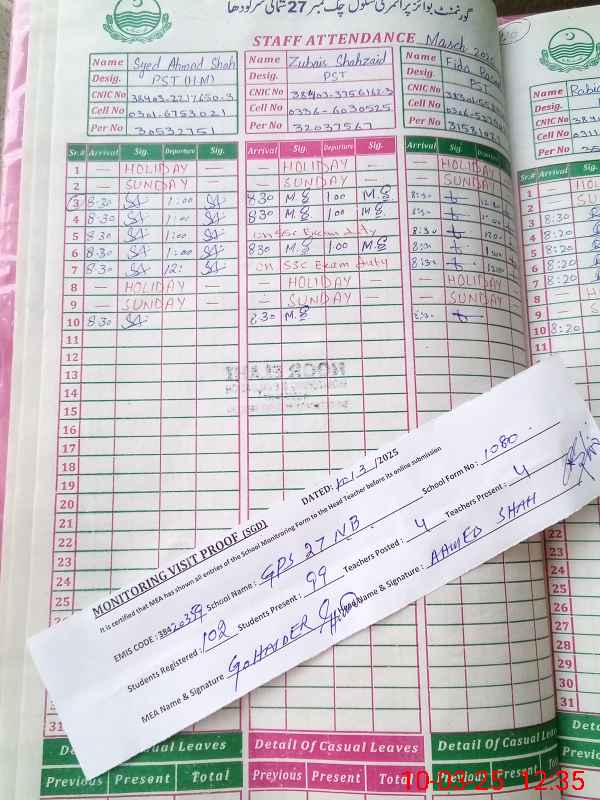 گورنمنٹ بوائز پرائمری سکول چک نمبر 27 شمالی سرگودھا
STAFF ATTENDANCE March 202
Name Syed Ahmad Shah
Desig. PST (H.M)
CNIC No 38403-2217650-3
Cell No 0301-6753021
Per No 30532751
Name Zubair Shahzaid
Desig. PST
CNIC No 38403-3756162-3
Cell No 0336-6030525
Per No 32037567
Name Fida
Desig. PST
CNIC No
Cell No
Per No
Name Rabia
Desig.
CNIC No
Cell No
Per No
Sr.# Arrival Sig. Departure Sig. Arrival Sig. Departure Sig. Arrival Sig. Departure Sr.# Arrival
1 — HOLIDAY — — HOLIDAY — — HOLIDAY 1
2 — SUNDAY — — SUNDAY — — SUNDAY 2
3 8:30 1:00 830 M.S 1.00 M.S 8:30 3 8:20
4 8:30 1:00 830 M.S 1.00 M.S 8:30 4 8:20
5 8:30 1:00 on SSC Exam duty 8:30 5 8:20
6 8:30 1:00 830 M.S 1.00 M.S 8:30 6 8:20
7 8:30 12: on SSC Exam duty 8:30 7 8:20
8 — HOLIDAY — — HOLIDAY — — HOLIDAY 8
9 — SUNDAY — — SUNDAY — — SUNDAY 9
10 8:30 830 M.S 8:30 10 8:20
11 11
12 12
13 13
14 14
15 15
16 16
17 17
18
19
20
21
22
23
24
25
MONITORING VISIT PROOF (SGD) DATED: 10/3/2025
It is certified that MEA has shown all entries of the School Monitroring Form to the Head Teacher before its online submission
EMIS CODE : School Name : GPS 27 NB. School Form No : 1080
Students Registered : 102 Students Present : 99 Teachers Posted : 4 Teachers Present : 4
MEA Name & Signature Name & Signature : AHMED SHAH
31
31
Detail Of Casual Leaves Detail Of Casual Leaves Detail Of Casual Leaves
Previous Present Total Previous Present Total Previous Present Total
10-03-25 12:35